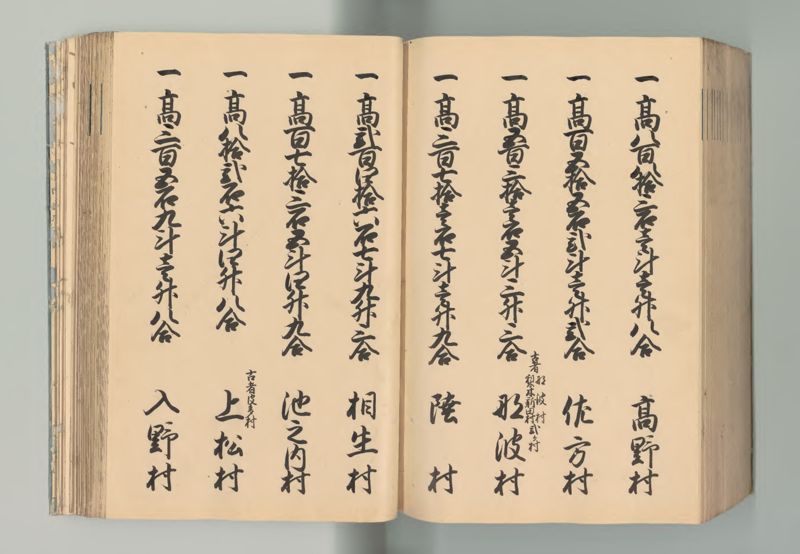 一 高八百八拾三石壱斗壱升八合 高野村
一 高百五拾五石弐斗壱升弐合 佐方村
一 高五百三拾壱石五斗三升三合 那波村
古者 那波村
一 高三百七拾壱石七斗壱升九合 陸村
一 高弐百四拾六石七斗九升三合 相生村
一 高百七拾三石五斗四升九合 池之内村
一 高八拾弐石六斗四升八合 上松村
古者
一 高三百五石九斗壱升八合 入野村